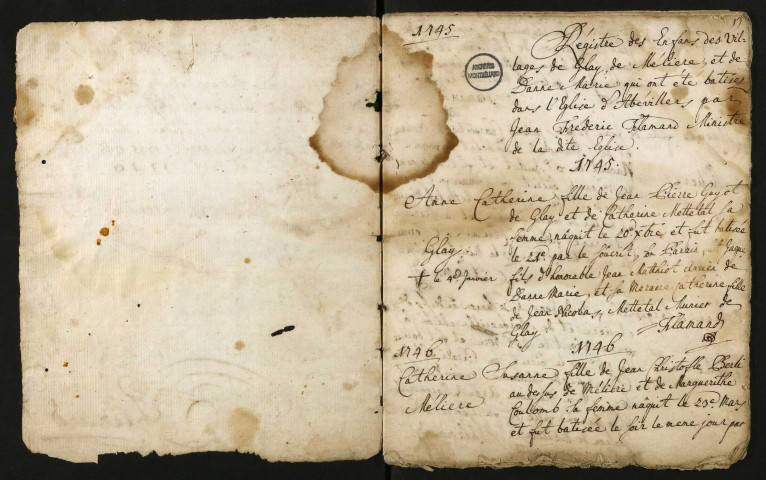 1745
Régistre des Enfans des Vil-
lages de Glay, de Méliere, et de
Danne Marie qui ont été batisés
dans l'Eglise d'Abévillers par
Jean Frederic Flamand Ministre
de la dite Eglise.
1745.
ARCHIVES
MONTBÉLIARD
Anne Catherine fille de Jean Pierre Guyot
de Glay, et de Catherine Mettetal sa
femme nâquit le 20e Xbre et fut batisée
le 21e par le soucrit, son Parain
fils d'honorable Jean Mathiot de
Danne Marie, et sa Maraine Catherine fille
de Jean Nicolas Mettetal Munier de
Glay. Flamand
Glay.
† le 4e Janvier
1746
1746
Catherine Susanne fille de Jean Christofle
au dessus de Méliére et de Marguerithe
sa femme nâquit le 23e Mars
et fut batisée le soir le meme jour par
Méliere